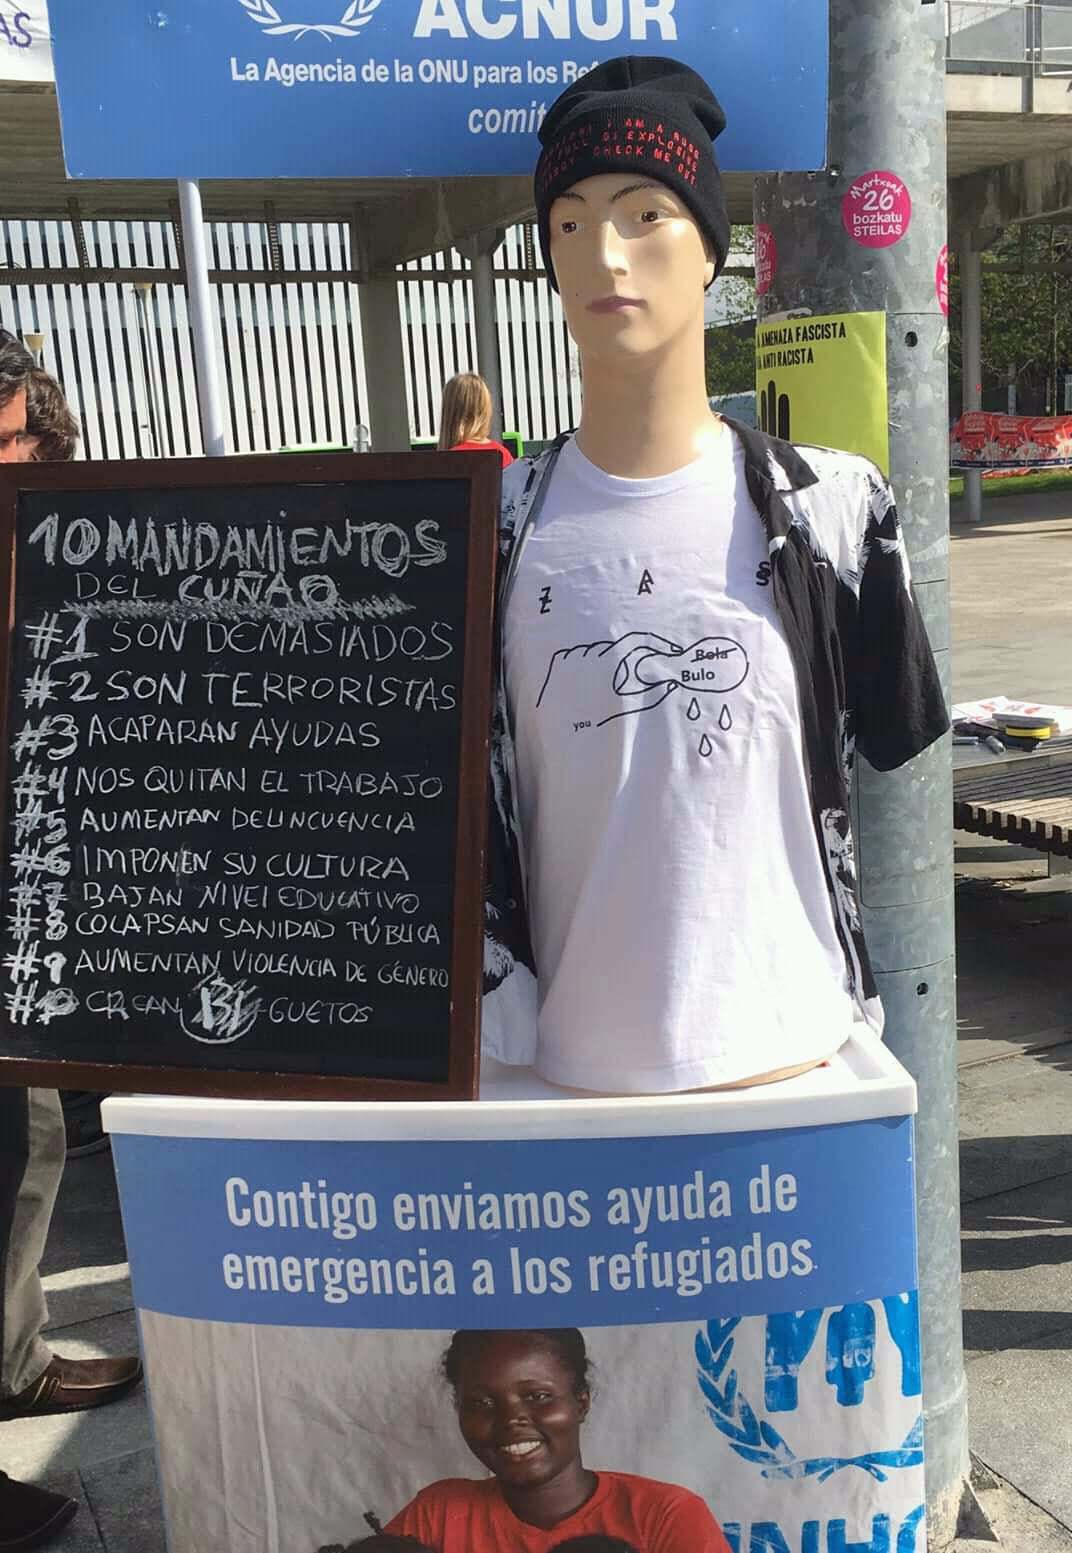 AS
ACNUR
La Agencia de la ONU para los Re
comit
I AM A
FULL OF EXPLOSIVE
CHECK ME OUT
Martxoak
26
bozkatu
STEILAS
26
AMENAZA FASCISTA
ANTI RACISTA
10 MANDAMIENTOS
DEL CUÑAO
#1 SON DEMASIADOS
#2 SON TERRORISTAS
#3 ACAPARAN AYUDAS
#4 NOS QUITAN EL TRABAJO
#5 AUMENTAN DELINCUENCIA
#6 IMPONEN SU CULTURA
#7 BAJAN NIVEl EDUCATIVO
#8 COLAPSAN SANIDAD PÚBLICA
#9 AUMENTAN VIOLENCIA DE GÉNERO
#10 CREAN GUETOS
Z A S
Bola
Bulo
you
Contigo enviamos ayuda de
emergencia a los refugiados.
UNHC